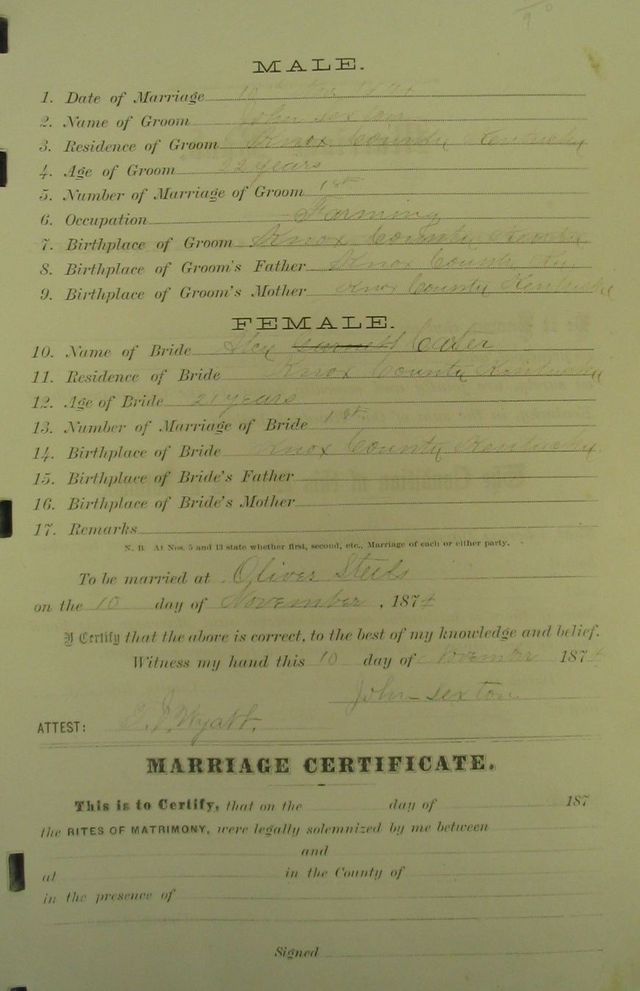 MALE.
1. Date of Marriage 10
2. Name of Groom John Sexton
3. Residence of Groom Knox County Kentucky
4. Age of Groom 22 years
5. Number of Marriage of Groom 1st
6. Occupation Farming
7. Birthplace of Groom Knox County Kentucky
8. Birthplace of Groom's Father Knox County Ky
9. Birthplace of Groom's Mother Knox County Kentucky
FEMALE.
10. Name of Bride
11. Residence of Bride Knox County Kentucky
12. Age of Bride 21 years
13. Number of Marriage of Bride 1st
14. Birthplace of Bride Knox County Kentucky.
15. Birthplace of Bride's Father
16. Birthplace of Bride's Mother
17. Remarks
N. B. At Nos. 5 and 13 state whether first, second, etc., Marriage of each or either party.
To be married at Oliver Steels
on the 10 day of November, 1874
I Certify that the above is correct, to the best of my knowledge and belief.
Witness my hand this 10 day of November 1874
John Sexton
ATTEST: Wyatt.
MARRIAGE CERTIFICATE.
This is to Certify, that on the day of 187
the RITES OF MATRIMONY, were legally solemnized by me between
and
at in the County of
in the presence of
Signed